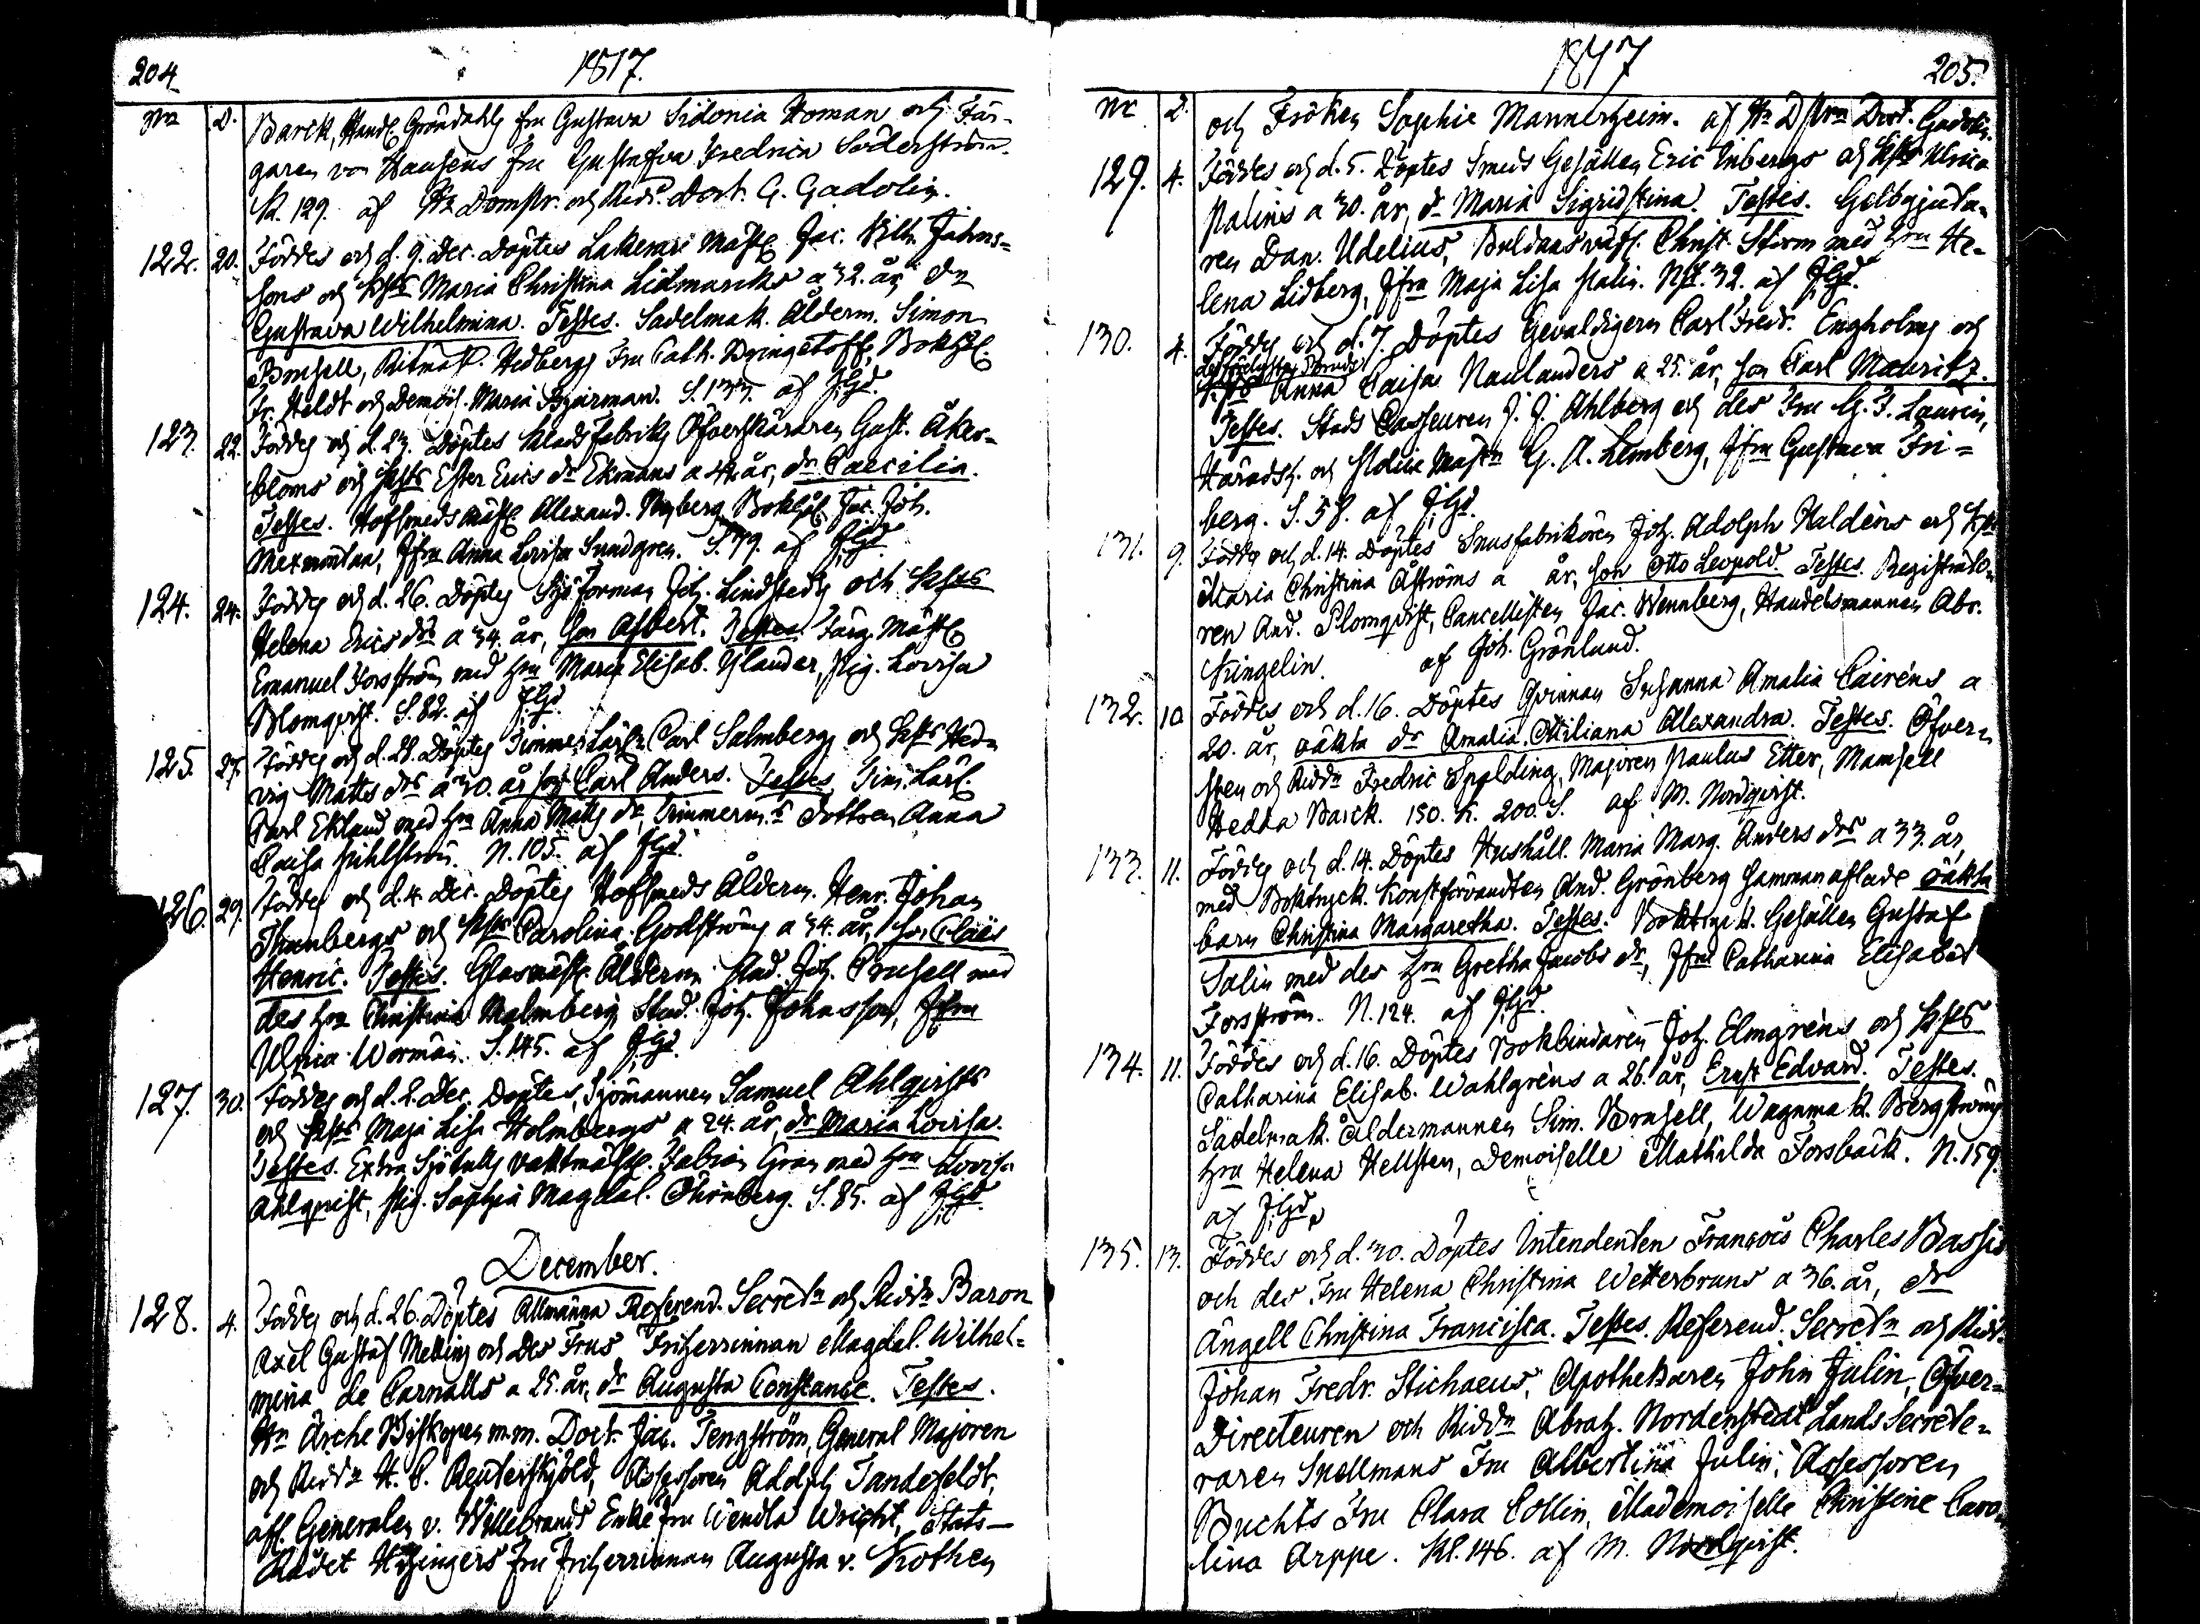 204
1817.
Nro D.
Barck, Handl. Gröndahls fru Gustava Sidonia Homan och Fär-
garen von Hausens fru Gustafva Fredrica Söderström.
K. 129. af Hr Dompr. och Ridd. Doct. G. Gadolin.
122. 20. Föddes och d. 9. Dec. Döptes Lakerare Mäst. Jac. Wilh. Johns-
sons och Hust. Maria Christina Lidmarcks a 32. år, dr
Gustava Wilhelmina. Testes. Sadelmak. Ålderm. Simon
Brusell, Ritmäst. Hedbergs Fru Cath. Boktr.
Fr. Heldt och Demois. Maria Bjurman. S. 133. af
123. 22. Föddes och d. 23. Döptes Klädsfabriks Öfverskäraren Gust. Åker-
bloms och Hust. Ester Erics dr Ekmans a år, dr Caecilia.
Testes. Hofsmeds Mäst. Alexand. Nyberg, Bokhål. Jac. Joh.
Mexmontan, Jfru Anna Lovisa Sundgren. S. 79. af
124. 24. Föddes och d. 26. Döptes Sjöforman Joh. Lindstedts och Hust.
Helena Erics dr a 34. år, son Albert. Testes. Färg. Mäst.
Emanuel Forsström med hru Maria Elisab. Ylander, Pig. Lovisa
Blomqvist. S. 82. af
125. 27. Föddes och d. 28. Döptes Timmer Carl Salmbergs och Hust. Hed-
vig Matts drs a 30. år son Carl Anders. Testes. Tim. Karl.
Carl Eklund med hru Anna Matts dr, Timmerm. Dottren Anna
Caisa N. 105. af
126. 29. Föddes och d. 4. Dec. Döptes Hofsmeds Ålderm. Henr. Johan
Thunbergs och Hust. Carolina Godströms a 34. år, son Claës
Henric. Testes. Glasmäst. Ålderm. And. Joh. Brusell med
des hru Christina Malmberg, Stud. Joh. Johnsson, Jfru
Ulrica Worman. S. 145. af
127. 30. Föddes och d. 2. Dec. Döptes, Sjömannen Samuel Ahlqvists
och Hust. Maja Lisa Holmbergs a 24. år, dr Maria Lovisa.
Testes. Extra Sjötulls vaktmäst. Fabian Gran med hru Lovisa
Ahlqvist, Pig. Sophia Magdal. Öhrnberg. S. 85. af
December.
128. 4. Föddes och d. 26. Döptes Allmänna Referend. Secret. och Riddn Baron
Axel Gustaf Mellins och Des Frus Friherrinnan Magdal. Wilhel-
mina de Carnalls a 25. år, dr Augusta Constance. Testes.
Hr Arche Biskopen m.m. Doct. Jac. Tengström, General Majoren
och Riddn H. C. Reuterskjöld, Assessoren Adolph Tandefeldt,
afl. Generalen v. Willebrands Enke fru Wendla Wright, Stats-
Rådet Hisingers fru Friherrinnan Augusta v. Kothen
1817
205.
Nr D.
och Fröken Sophie Mannerheim. af Hr Doct. Gadolin.
129. 4. Föddes och d. 5. Döptes Smeds Gesällen Eric Enbergs och Hust. Ulrica
Palins a 30. år, dr Maria Sigridstina. Testes. Gelbgjuta-
ren Dan. Udelius, Christ. Storm med hru He-
lena Lidberg, Jfru Maja Lisa Palin. 32. af
130. 4. Föddes och d. 7. Döptes Gevaldigern Carl Fredr. Engholms och
Anna Caisa Naulanders a 25. år, son Carl Mauritz.
Testes. Stads Casseuren J. J. Ahlberg och des Fru G. F. Laurin,
Häradsh. och Police Mästn G. A. Lemberg, Jfru Gustava Fri-
berg. S. 58. af
131. 9. Föddes och d. 14. Döptes Snusfabrikören Joh. Adolph Haldéns och Hust.
Maria Christina Åströms a år, son Otto Leopold. Testes. Registrato-
ren And. Blomqvist, Cancellisten Jac. Wennberg, Handelsmannen Abr.
Kingelin. af Joh. Grönlund.
132. 10. Föddes och d. 16. Döptes Qvinnan Susanna Amalia Cairéns a
20. år, oäkta dr Amalia Miliana Alexandra. Testes. Öfver-
sten och Riddn Fredric Spalding, Majoren Paulus Etter, Mamsell
Hedda Barck. 150. K. 200. S. af M. Nordqvist.
133. 11. Föddes och d. 14. Döptes Hushåll. Maria Marg. Anders drs a 33. år,
med Boktryck. Konstförvandten And. Grönberg sammanaflade oäkta
barn Christina Margaretha. Testes. Boktryk. Gesällen Gustaf
Salin med des hru Gretha Jacobs dr, Jfru Catharina Elisabet
Forsström. N. 124. af
134. 11. Föddes och d. 16. Döptes Bokbindaren Joh. Elmgréns och Hust.
Catharina Elisab. Wahlgréns a 26. år, Ernst Edvard. Testes.
Sadelmak. Åldermannen Sim. Brusell, Wagnmak. Bergströms
hru Helena Hellsten, Demoiselle Mathilda Forsbäck. N. 159.
af
135. 13. Föddes och d. 30. Döptes Intendenten François Charles Bassis
och des Fru Helena Christina Wetterbruns a 36. år, dr
Angell Christina Francisca. Testes. Referend. Secretn och Ridd.
Johan Fredr. Stichaeus, Apothekaren John Julin, Öfver-
Directeuren och Riddn Abrah. Nordenstedt Lands Secrete-
raren Snellmans Fru Albertina Julin, Assessoren
Buchts Fru Clara Collin, Mademoiselle Christine Caro-
lina Arppe. Kl. 146. af M. Nordqvist.